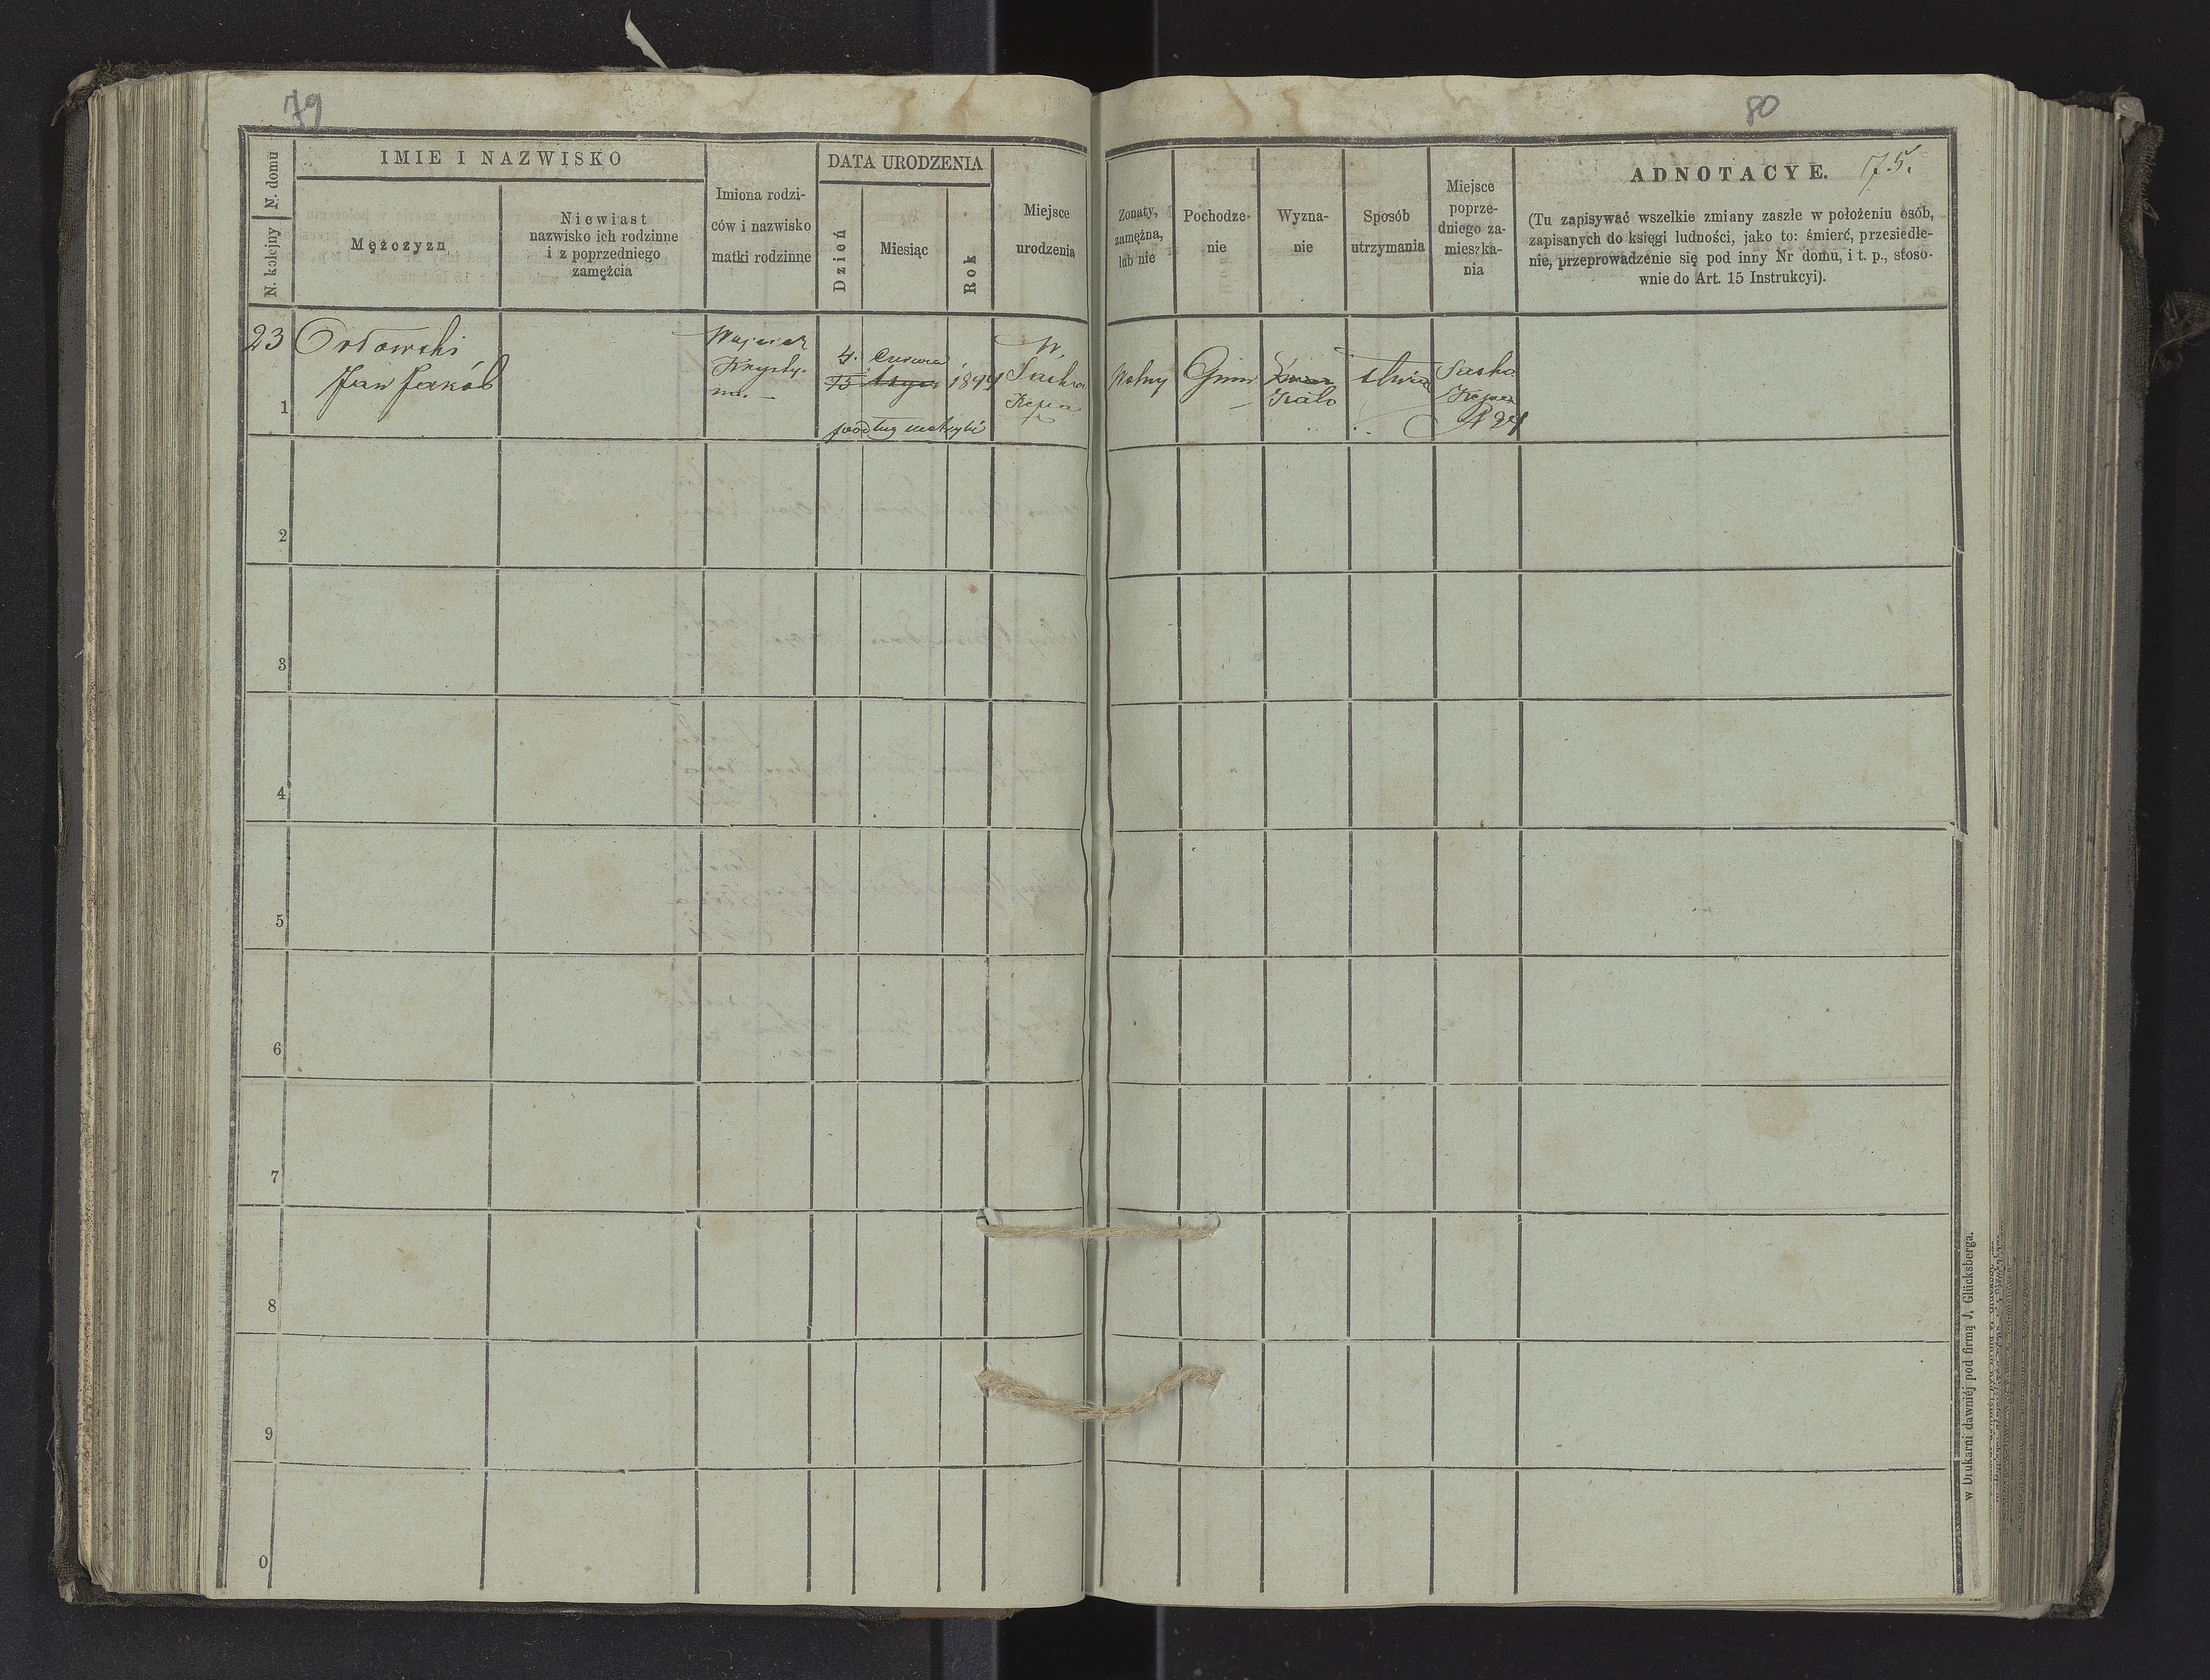 79
80
75.
N. domu
N. kolejny
IMIE I NAZWISKO
Mężczyzn
Niewiast
nazwisko ich rodzinne
i z poprzedniego
zamężcia
Imiona rodzi-
ców i nazwisko
matki rodzinne
DATA URODZENIA
Dzień
Miesiąc
Rok
Miejsce
urodzenia
Zonaty,
zamężna,
lub nie
Pochodze-
nie
Wyzna-
nie
Sposób
utrzymania
Miejsce
poprze-
dniego za-
mieszka-
nia
ADNOTACYE.
(Tu zapisywać wszelkie zmiany zaszłe w położeniu osób,
zapisanych do księgi ludności, jako to: śmierć, przesiedle-
nie, przeprowadzenie się pod inny Nr domu, i t. p., stoso-
wnie do Art. 15 Instrukcyi).
23
1
Orłowski
Jan Jakób
Wojciech
Krysty-
na.
4. Czerwca
15
podług metryki
W.
Saska
Kępa
Wolny
Gmin
Kato
Saska
Kępa
N 24
2
3
4
5
6
7
8
9
0
w Drukarni dawniéj pod firmą J. Glücksberga.